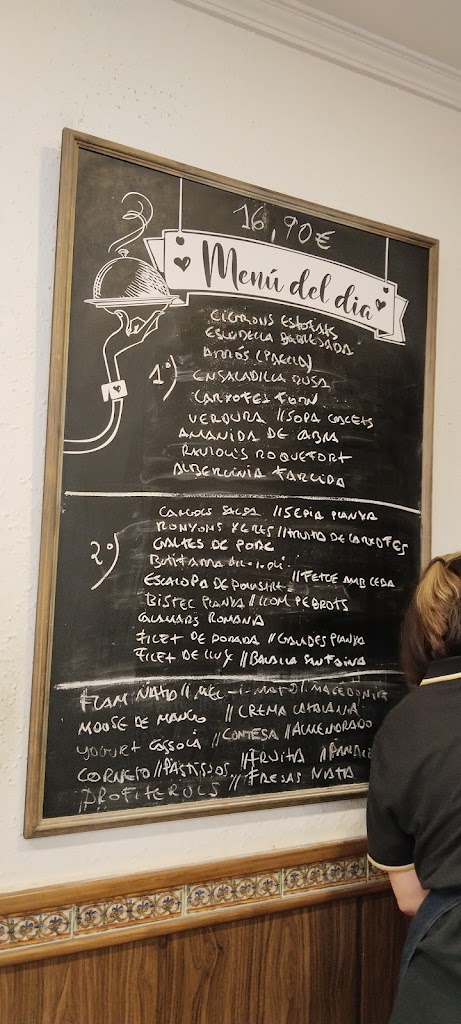 16,90€
Menú del dia
1º)
CIGRONS ESTOFATS
ESCUDELLA BARREJADA
ARRÓS (PAELLA)
ENSALADILLA RUSA
CARXOFES FORN
VERDURA // SOPA GALETS
AMANIDA DE CABRA
RAVIOLIS ROQUEFORT
ALBERGINIA FARCIDA
2º)
CARGOLS SALSA // SEPIA PLANXA
RONYONS XERES // TRUITA DE CARXOFES
GALTES DE PORC
BOTIFARRA
ESCALOPA DE POLLASTRE // FETGE AMB CEBA
BISTEC PLANXA // LLOM PEBROTS
CALAMARS ROMANA
FILET DE DORADA // GAMBES PLANXA
FILET DE LLUÇ // BACALLA SANFAINA
FLAM NATA // MEL-I-MATO // MACEDONIA
MOOSE DE MANGO // CREMA CATALANA
YOGURT GOSSOLA // CONTESA // ALMENDRADO
CORNETO // PASTISSOS // FRUITA //
PROFITEROLS // FRESAS NATA